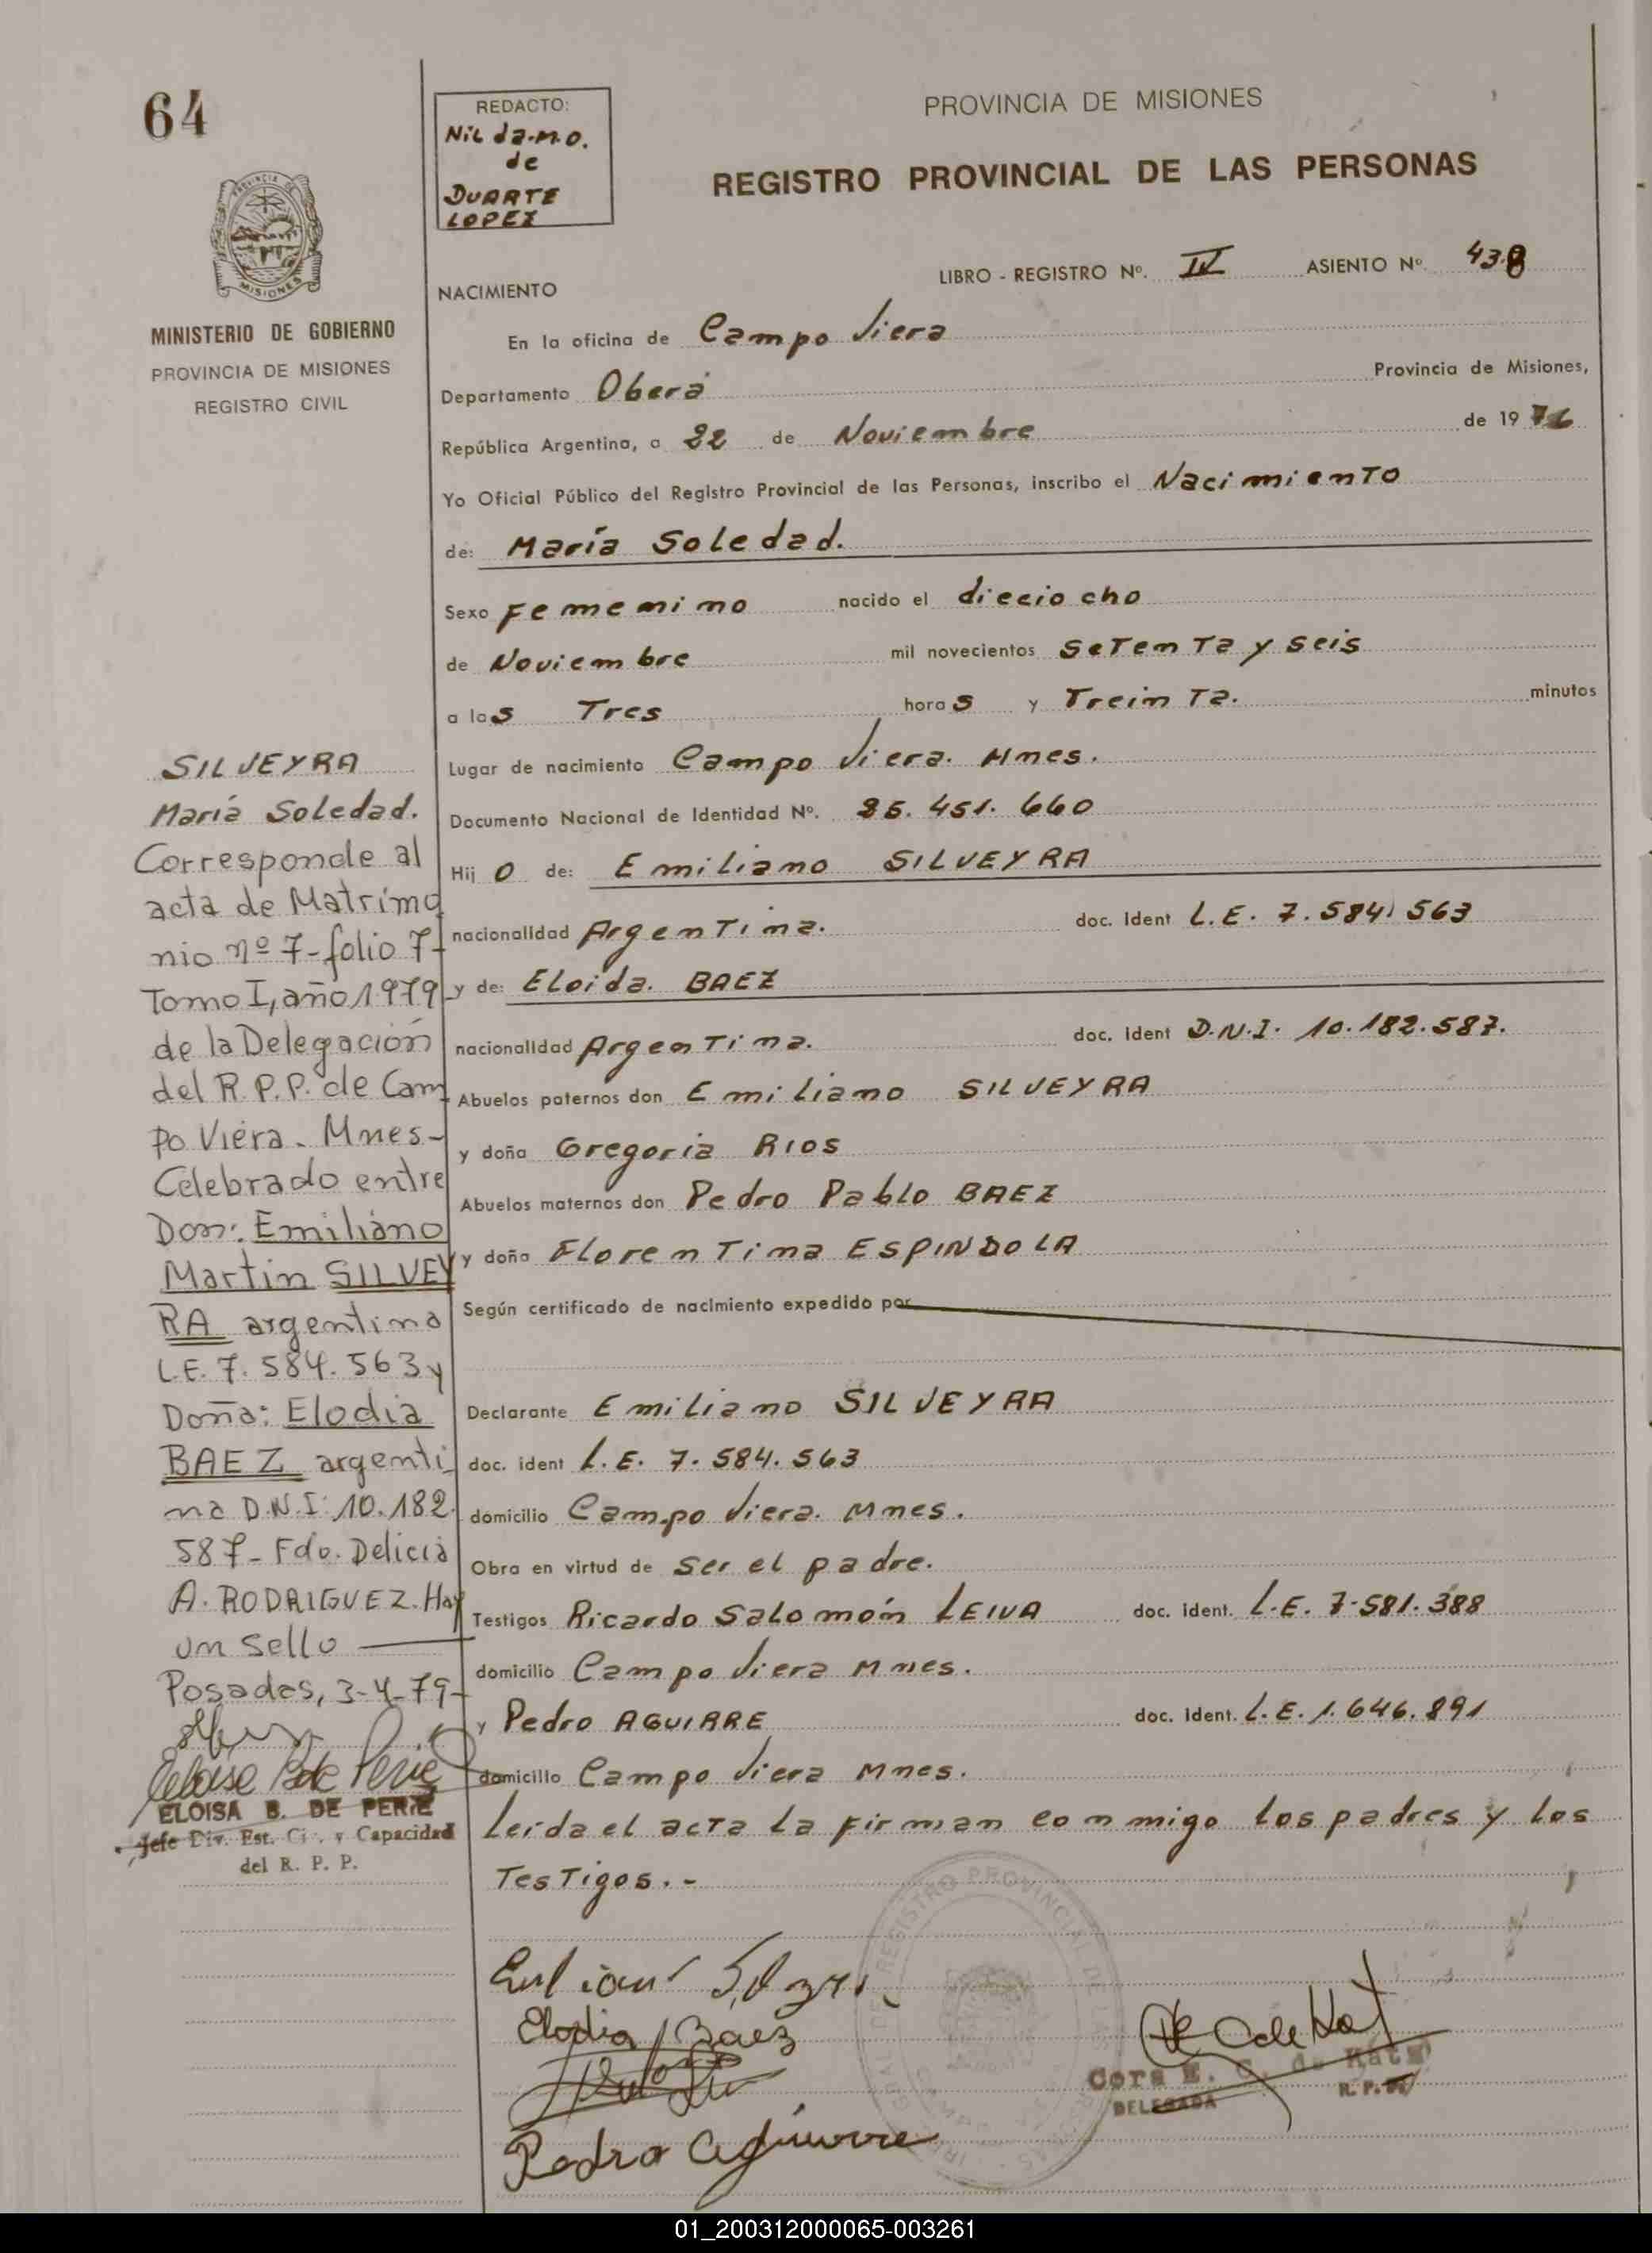 64
REDACTO:
Nilda.M.O.
de
DUARTE
LOPEZ
PROVINCIA DE MISIONES
REGISTRO PROVINCIAL DE LAS PERSONAS
LIBRO - REGISTRO Nº. IV ASIENTO Nº 438
MISIONES
MINISTERIO DE GOBIERNO
PROVINCIA DE MISIONES
REGISTRO CIVIL
NACIMIENTO
En la oficina de Campo Viera
Departamento Oberá Provincia de Misiones,
República Argentina, a 22 de Noviembre de 1976
Yo Oficial Público del Registro Provincial de las Personas, inscribo el Nacimiento
de: María Soledad.
Sexo Femenino nacido el dieciocho
de Noviembre mil novecientos setenta y seis
a las Tres horas y Treinta. minutos
Lugar de nacimiento Campo Viera. Mnes.
Documento Nacional de Identidad Nº. 25.451.660
Hijo de: Emiliano SILVEYRA
nacionalidad Argentina. doc. ident L.E. 7.584.563
y de: Eloida. BAEZ
nacionalidad Argentina. doc. ident D.N.I. 10.182.587.
Abuelos paternos don Emiliano SILVEYRA
y doña Gregoria RIOS
Abuelos maternos don Pedro Pablo BAEZ
y doña Florentina ESPINDOLA
Según certificado de nacimiento expedido por
Declarante Emiliano SILVEYRA
doc. ident L.E. 7.584.563
domicilio Campo Viera. Mnes.
Obra en virtud de ser el padre.
Testigos Ricardo Salomón LEIVA doc. ident. L.E. 7.581.388
domicilio Campo Viera Mnes.
y Pedro AGUIRRE doc. ident. L.E. 1.646.891
domicilio Campo Viera Mnes.
Leida el acta la firman conmigo los padres y los
Testigos.-
SILVEYRA
María Soledad.
Corresponde al
acta de Matrimo
nio nº 7-folio 7-
Tomo I, año 1979
de la Delegación
del R.P.P. de Cam
po Viera - Mnes-
Celebrado entre
Don: Emiliano
Martin SILVEY
RA argentino
L.E. 7.584.563 y
Doña: Elodia
BAEZ argenti
na D.N.I: 10.182.
587- Fdo. Delicia
A. RODRIGUEZ. Hay
un sello
Posadas, 3-4-79-
ELOISA B. DE PERIE
Jefe Div. Est. Civ. y Capacidad
del R. P. P.
Elodia Baez
Pedro Aguirre
REGISTRO PROVINCIAL DE LAS
Cora E. C. de Katz
DELEGADA R. P. P.
01_200312000065-003261